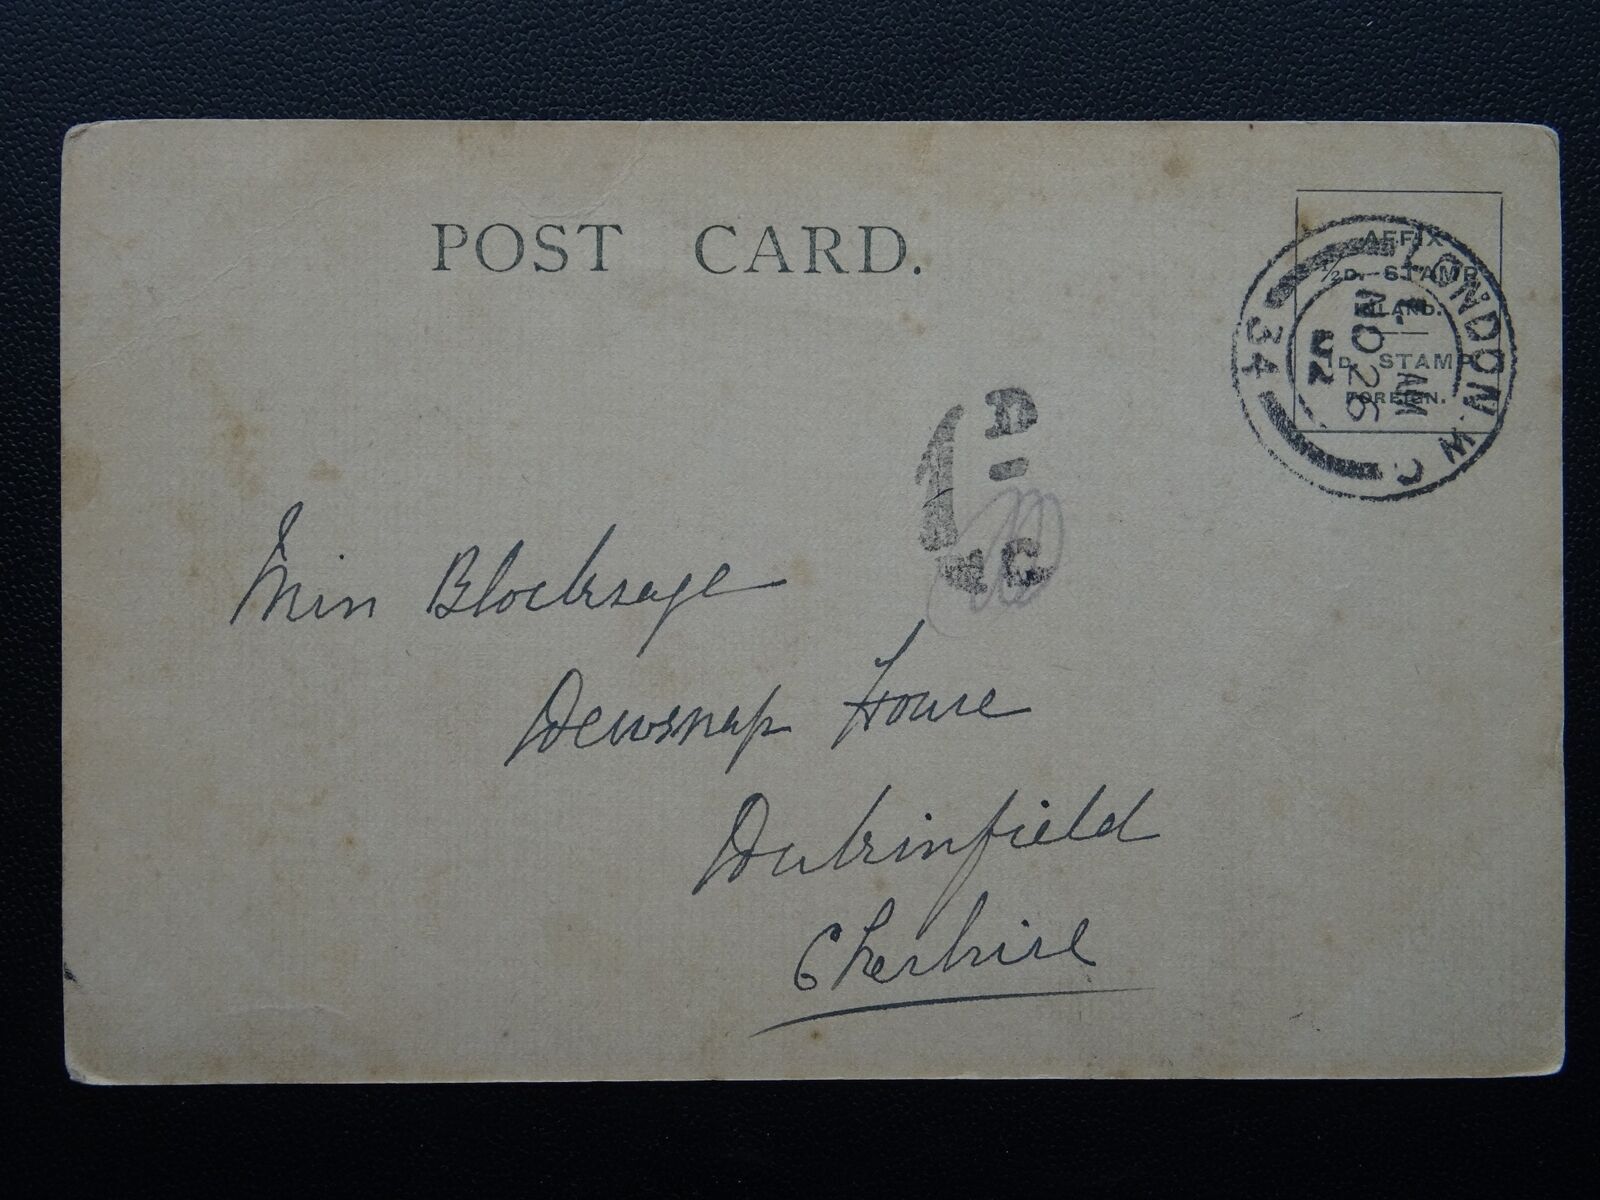 POST CARD.
AFFIX
½D. STAMP
INLAND.
1D. STAMP
FOREIGN.
LONDON. W C
AM
NO 26
34
1D
Miss Blocksage
Dewsnap House
Dukinfield
Cheshire